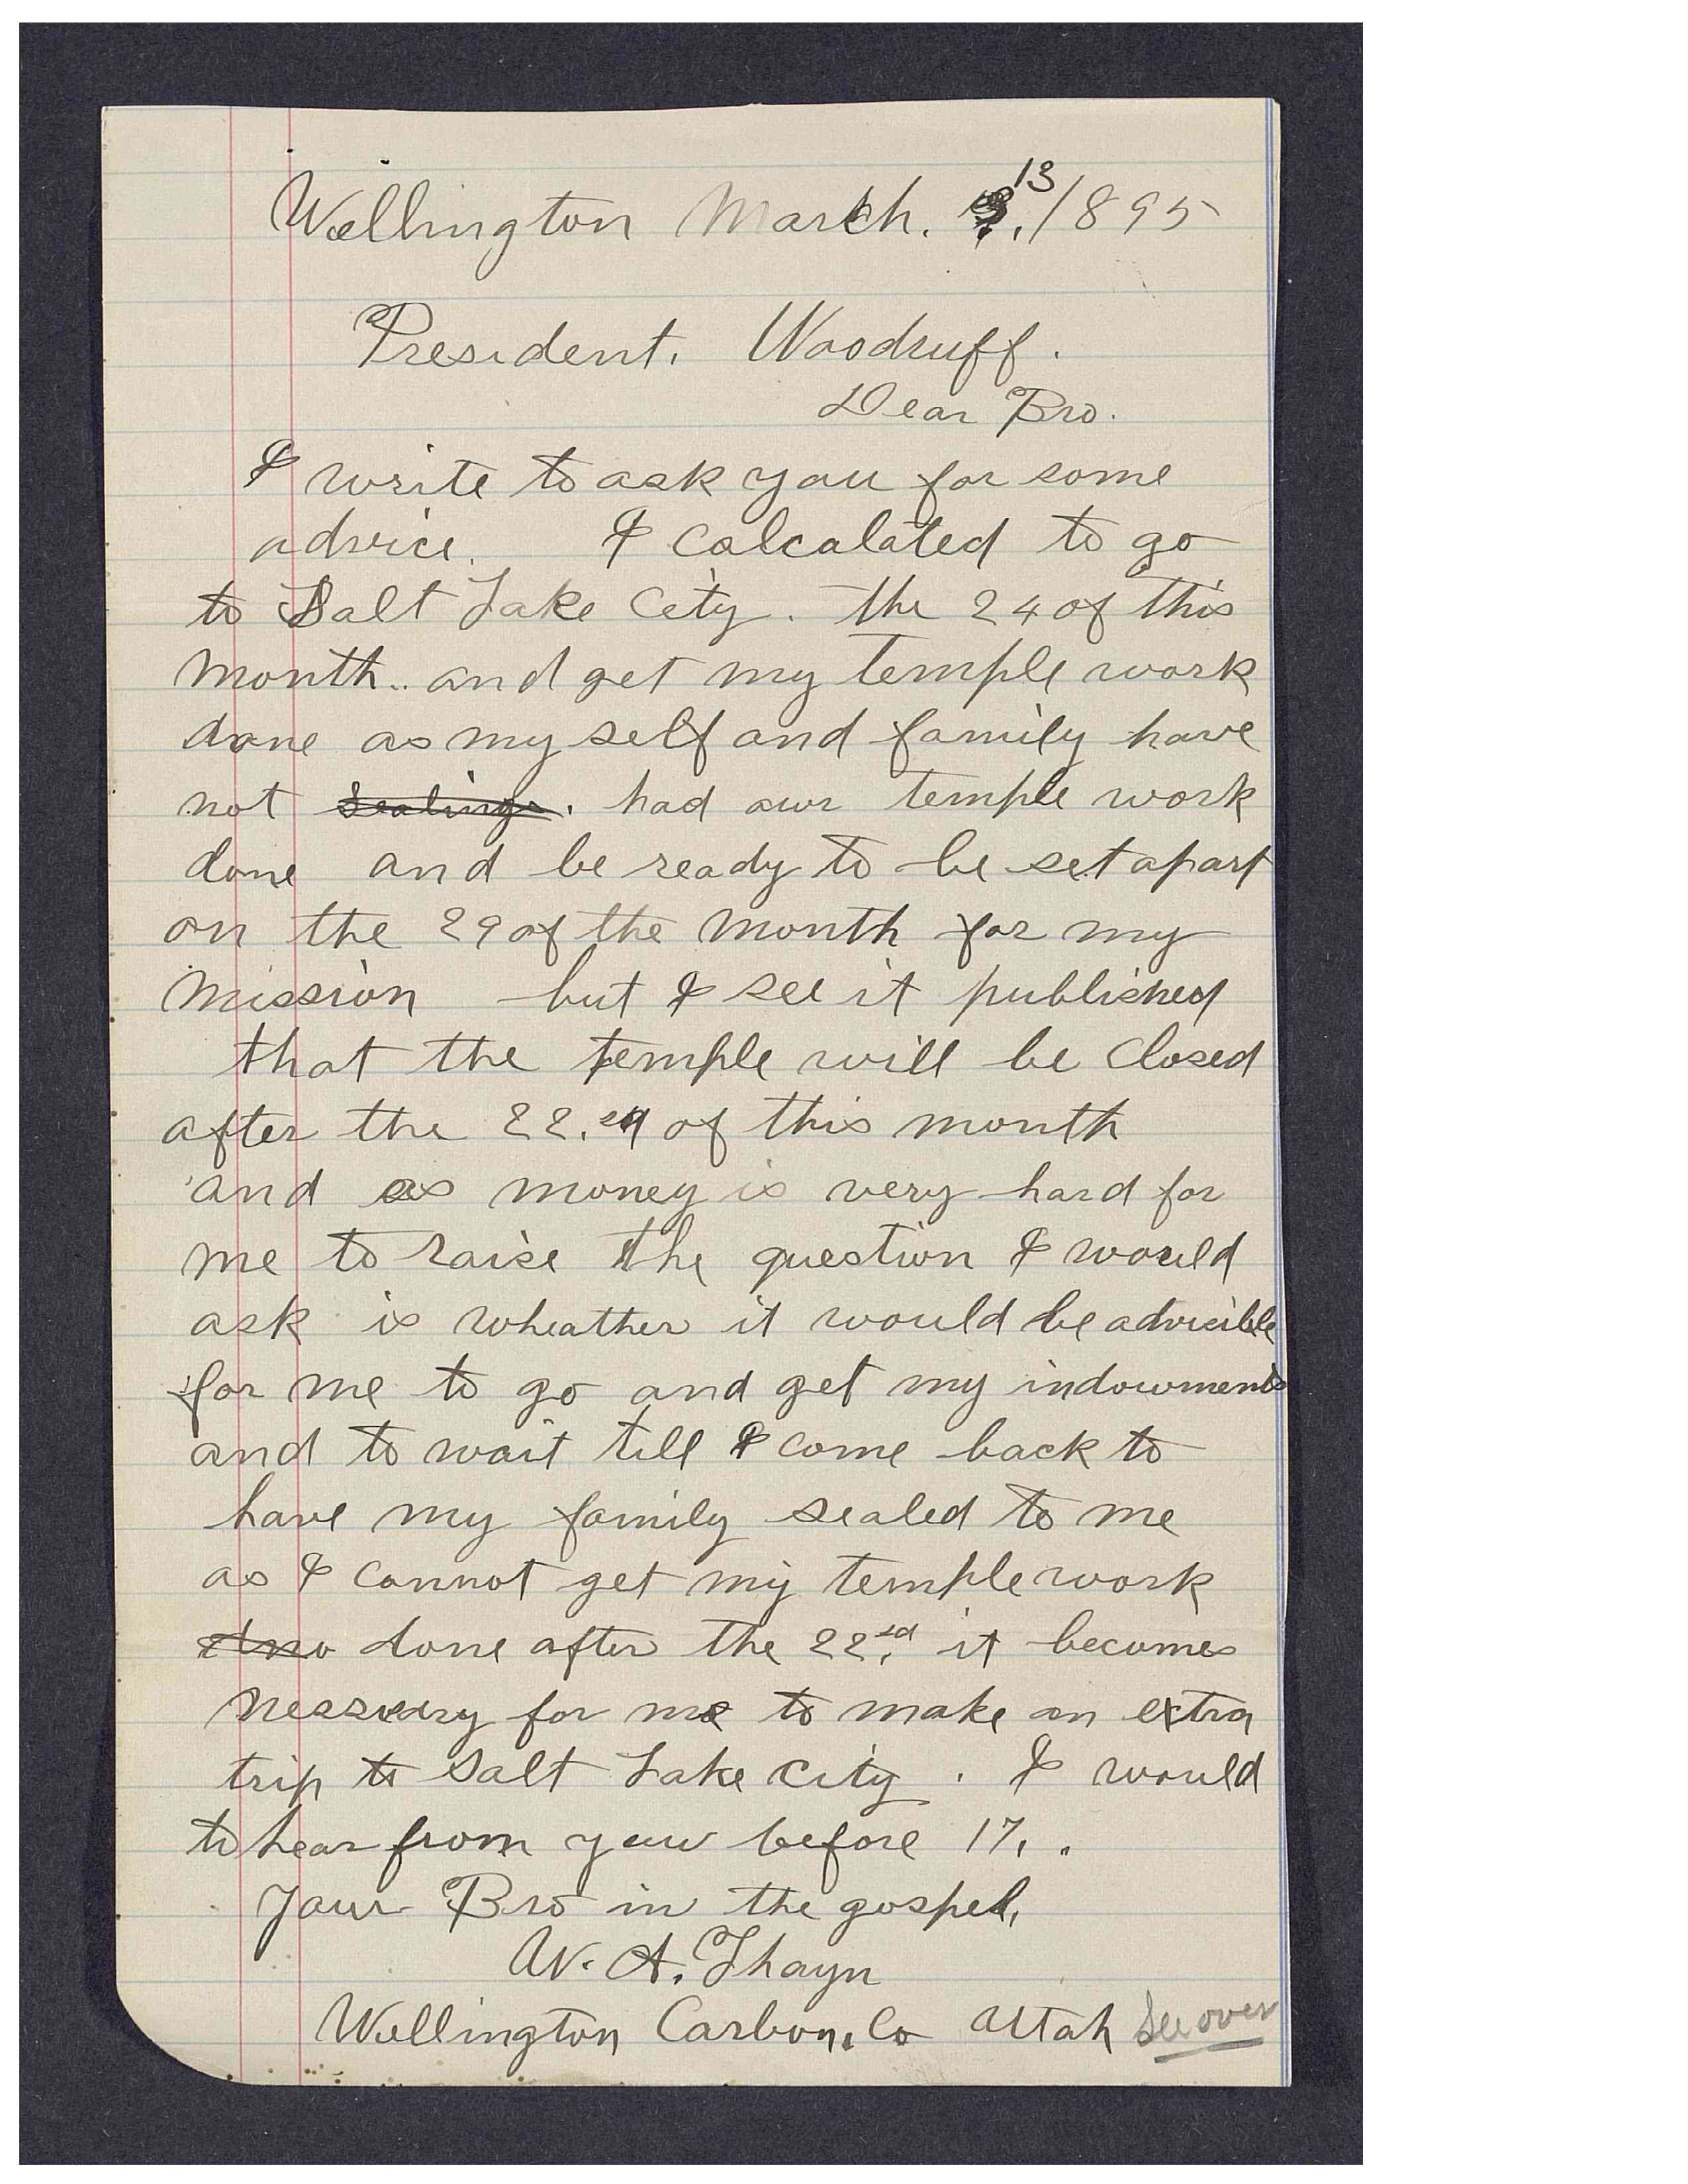 Wellington March. 13, /1895
President. Woodruff.
Dear Bro.
I write to ask you for some
advice. I calcalated to go
to Salt Lake City. the 24 of this
month.. and get my temple work
done as my self and family have
not sealings. had our temple work
done and be ready to be set apart
on the 29 of the month for my
mission but I see it published
that the temple will be closed
after the 22. of this month
and as money is very hard for
me to raise the question I would
ask is wheather it would be advisible
for me to go and get my indowments
and to wait till I come back to
have my family sealed to me
as I cannot get my temple work
done after the 22.nd it becomes
nessary for me to make an extra
trip to Salt Lake City. I would
to hear from you before 17. .
Your Bro in the gospel,
W. A. Thayn
Wellington Carbon. Co Utah See over